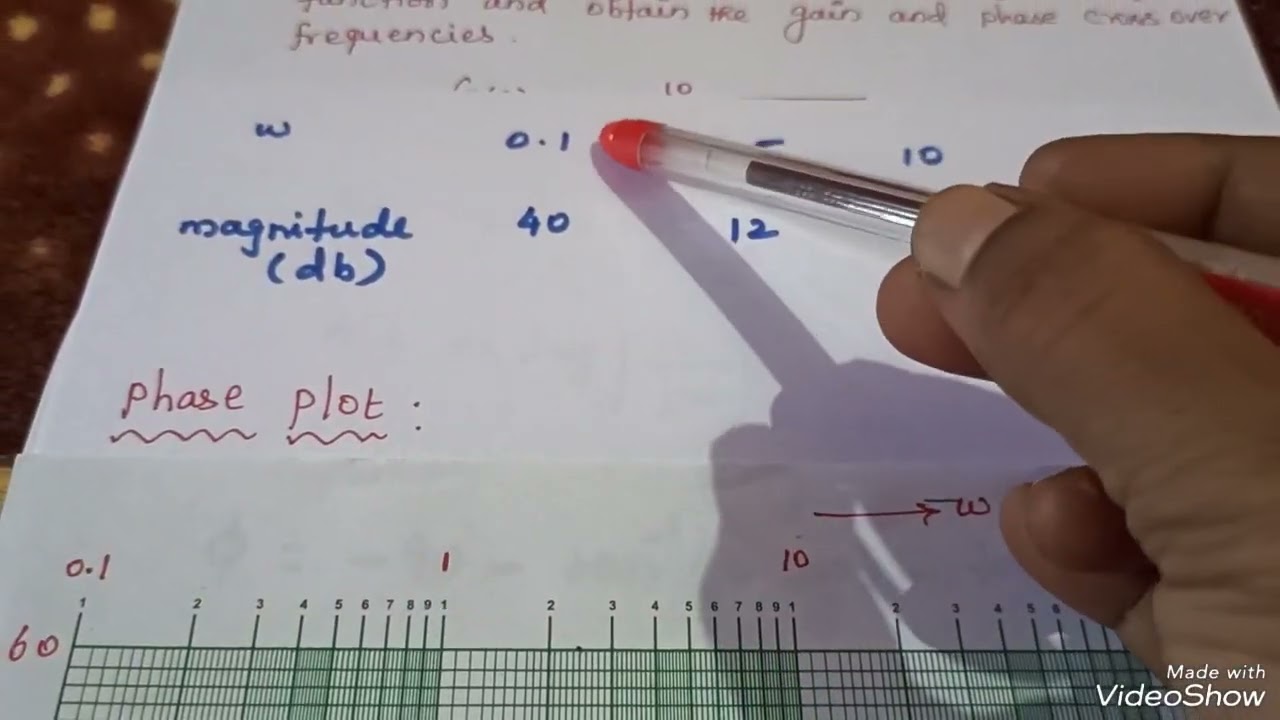 and obtain the gain and phase cross over
frequencies.
10
w 0.1 - 10
magnitude 40 12
(db)
phase plot :
w
0.1 1 10
1 2 3 4 5 6 7 8 9 1 2 3 4 5 6 7 8 9 1 2 3 4 5 6
60
Made with
VideoShow